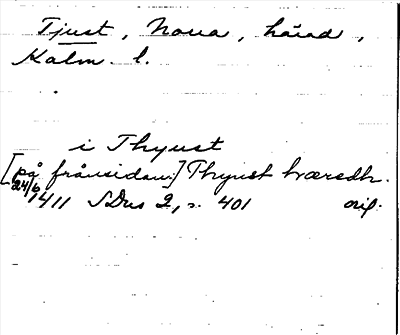 Tjust, Norra, härad,
Kalm. l.
i Thyust
[på frånsidan:] Thyust hæredh.
24/6 1411 SDns 2, s. 401 orig.